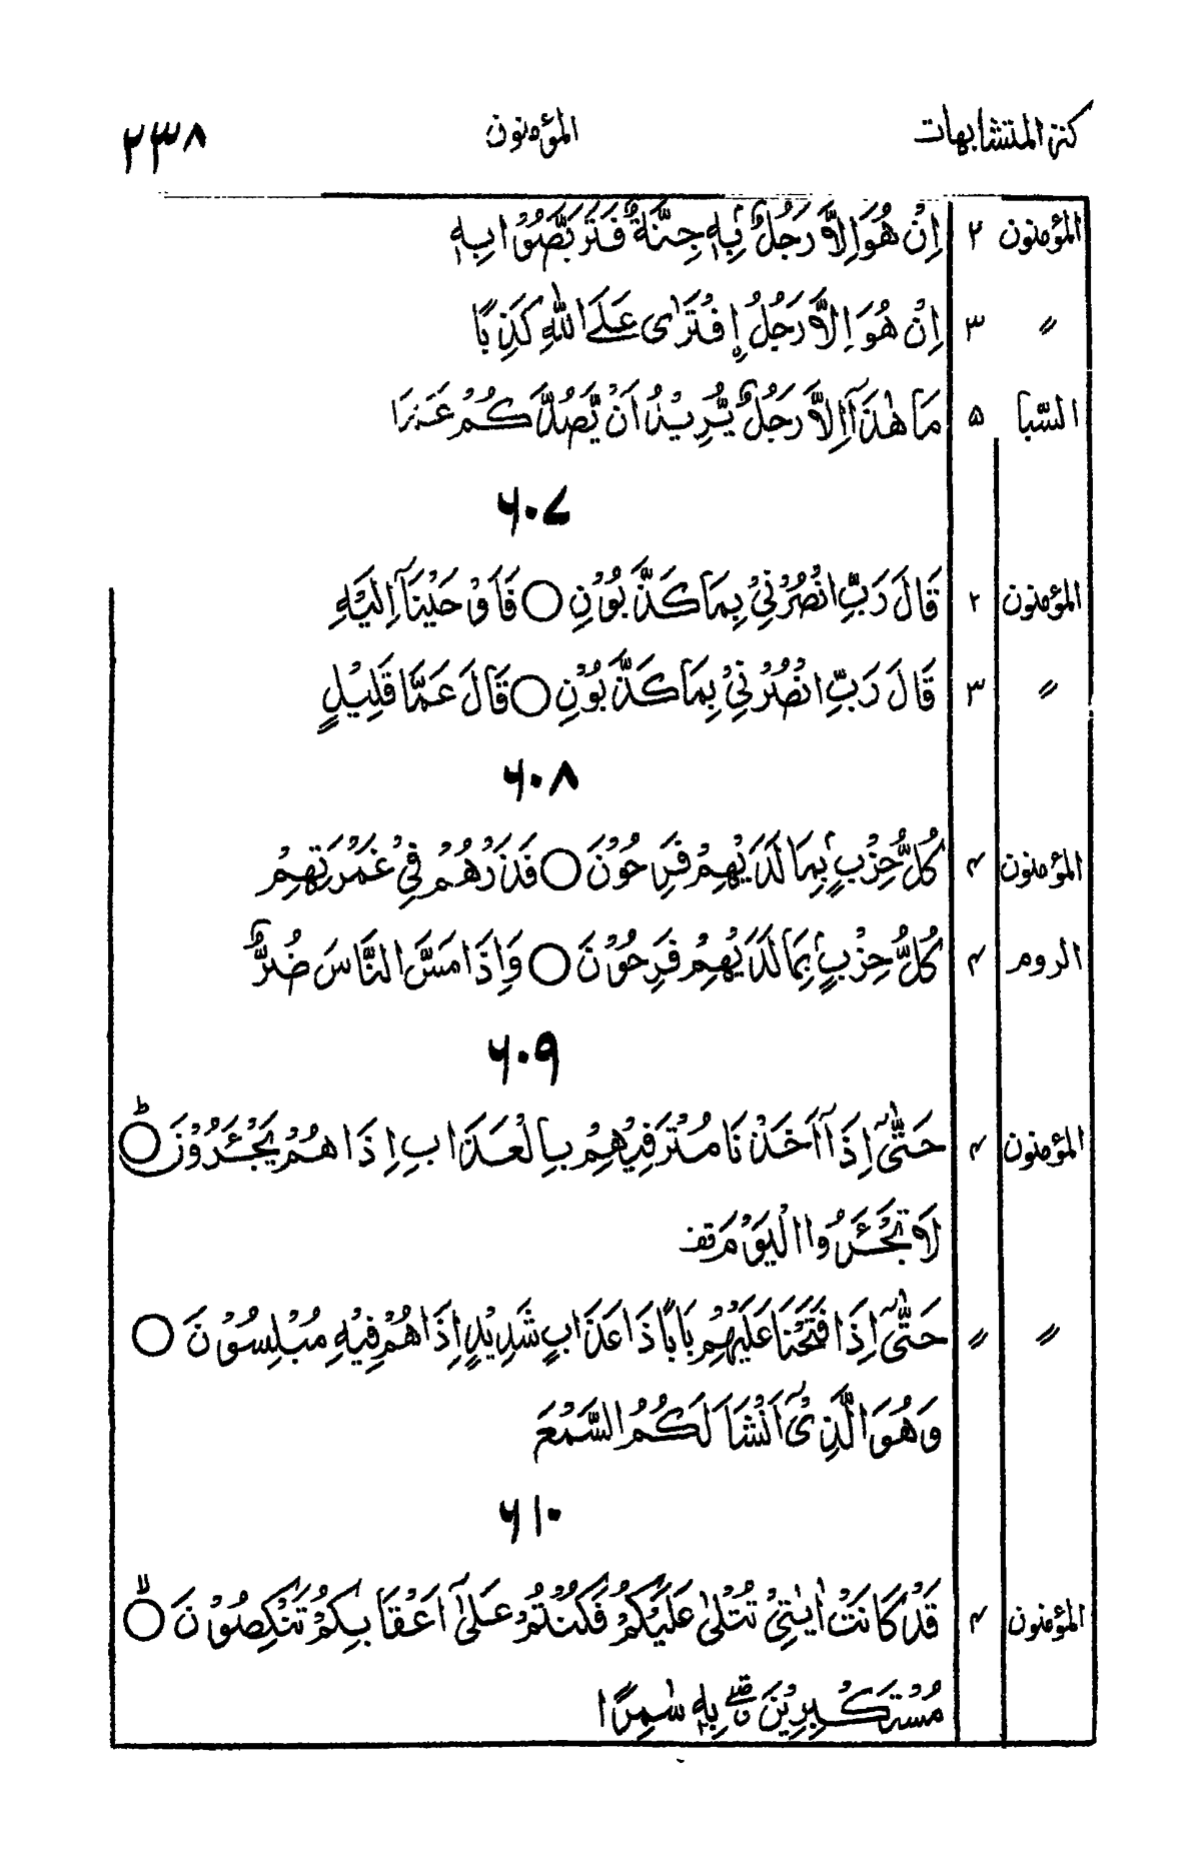 كنز المتشابهات المؤمنون ۲۳۸
المؤمنون ۲ اِنْ هُوَ اِلَّا رَجُلٌۢ بِهٖ جِنَّةٌ فَتَرَبَّصُوْا بِهٖ
〃 ۳ اِنْ هُوَ اِلَّا رَجُلُ ِۨافْتَرٰى عَلَى اللّٰهِ كَذِبًا
السّبا ۵ مَا هٰذَآ اِلَّا رَجُلٌ يُّرِيْدُ اَنْ يَّصُدَّكُمْ عَمَّا
۶۰۷
المؤمنون ۲ قَالَ رَبِّ انْصُرْنِيْ بِمَا كَذَّبُوْنِ ○ فَاَوْحَيْنَآ اِلَيْهِ
〃 ۳ قَالَ رَبِّ انْصُرْنِيْ بِمَا كَذَّبُوْنِ ○ قَالَ عَمَّا قَلِيْلٍ
۶۰۸
المؤمنون ۴ كُلُّ حِزْبٍۢ بِمَا لَدَيْهِمْ فَرِحُوْنَ ○ فَذَرْهُمْ فِيْ غَمْرَتِهِمْ
الروم ۴ كُلُّ حِزْبٍۢ بِمَا لَدَيْهِمْ فَرِحُوْنَ ○ وَاِذَا مَسَّ النَّاسَ ضُرٌّ
۶۰۹
المؤمنون ۴ حَتّٰىٓ اِذَآ اَخَذْنَا مُتْرَفِيْهِمْ بِالْعَذَابِ اِذَا هُمْ يَجْـَٔرُوْنَ ○ؕ
لَا تَجْـَٔرُوا الْيَوْمَ قف
〃 〃 حَتّٰىٓ اِذَا فَتَحْنَا عَلَيْهِمْ بَابًا ذَا عَذَابٍ شَدِيْدٍ اِذَا هُمْ فِيْهِ مُبْلِسُوْنَ ○
وَهُوَ الَّذِيْٓ اَنْشَاَ لَكُمُ السَّمْعَ
۶۱۰
المؤمنون ۴ قَدْ كَانَتْ اٰيٰتِيْ تُتْلٰى عَلَيْكُمْ فَكُنْتُمْ عَلٰٓى اَعْقَابِكُمْ تَنْكِصُوْنَ ○ۙ
مُسْتَكْبِرِيْنَ ۖۗ بِهٖ سٰمِرًا